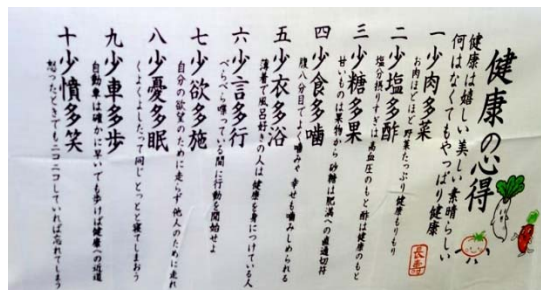 健康の心得
健康は嬉しい美しい素晴らしい
何はなくてもやっぱり健康
一 少肉多菜
お肉ほどほど 野菜たっぷり健康もりもり
二 少塩多酢
塩分摂りすぎは高血圧のもと酢は健康のもと
三 少糖多果
甘いものは果物から砂糖は肥満への直通切符
四 少食多噛
腹八分目でよく噛みゃ幸せも噛みしめられる
五 少衣多浴
薄着で風呂好きの人は健康を身につけている人
六 少言多行
べらべら喋っている間に行動を開始せよ
七 少欲多施
自分の欲望のために走らず他人のために走れ
八 少憂多眠
くよくよしたって同じとっとと寝てしまおう
九 少車多歩
自動車は確かに早いでも歩けば健康への近道
十 少憤多笑
怒ったときでもニコニコしていれば忘れてしまう
長寿